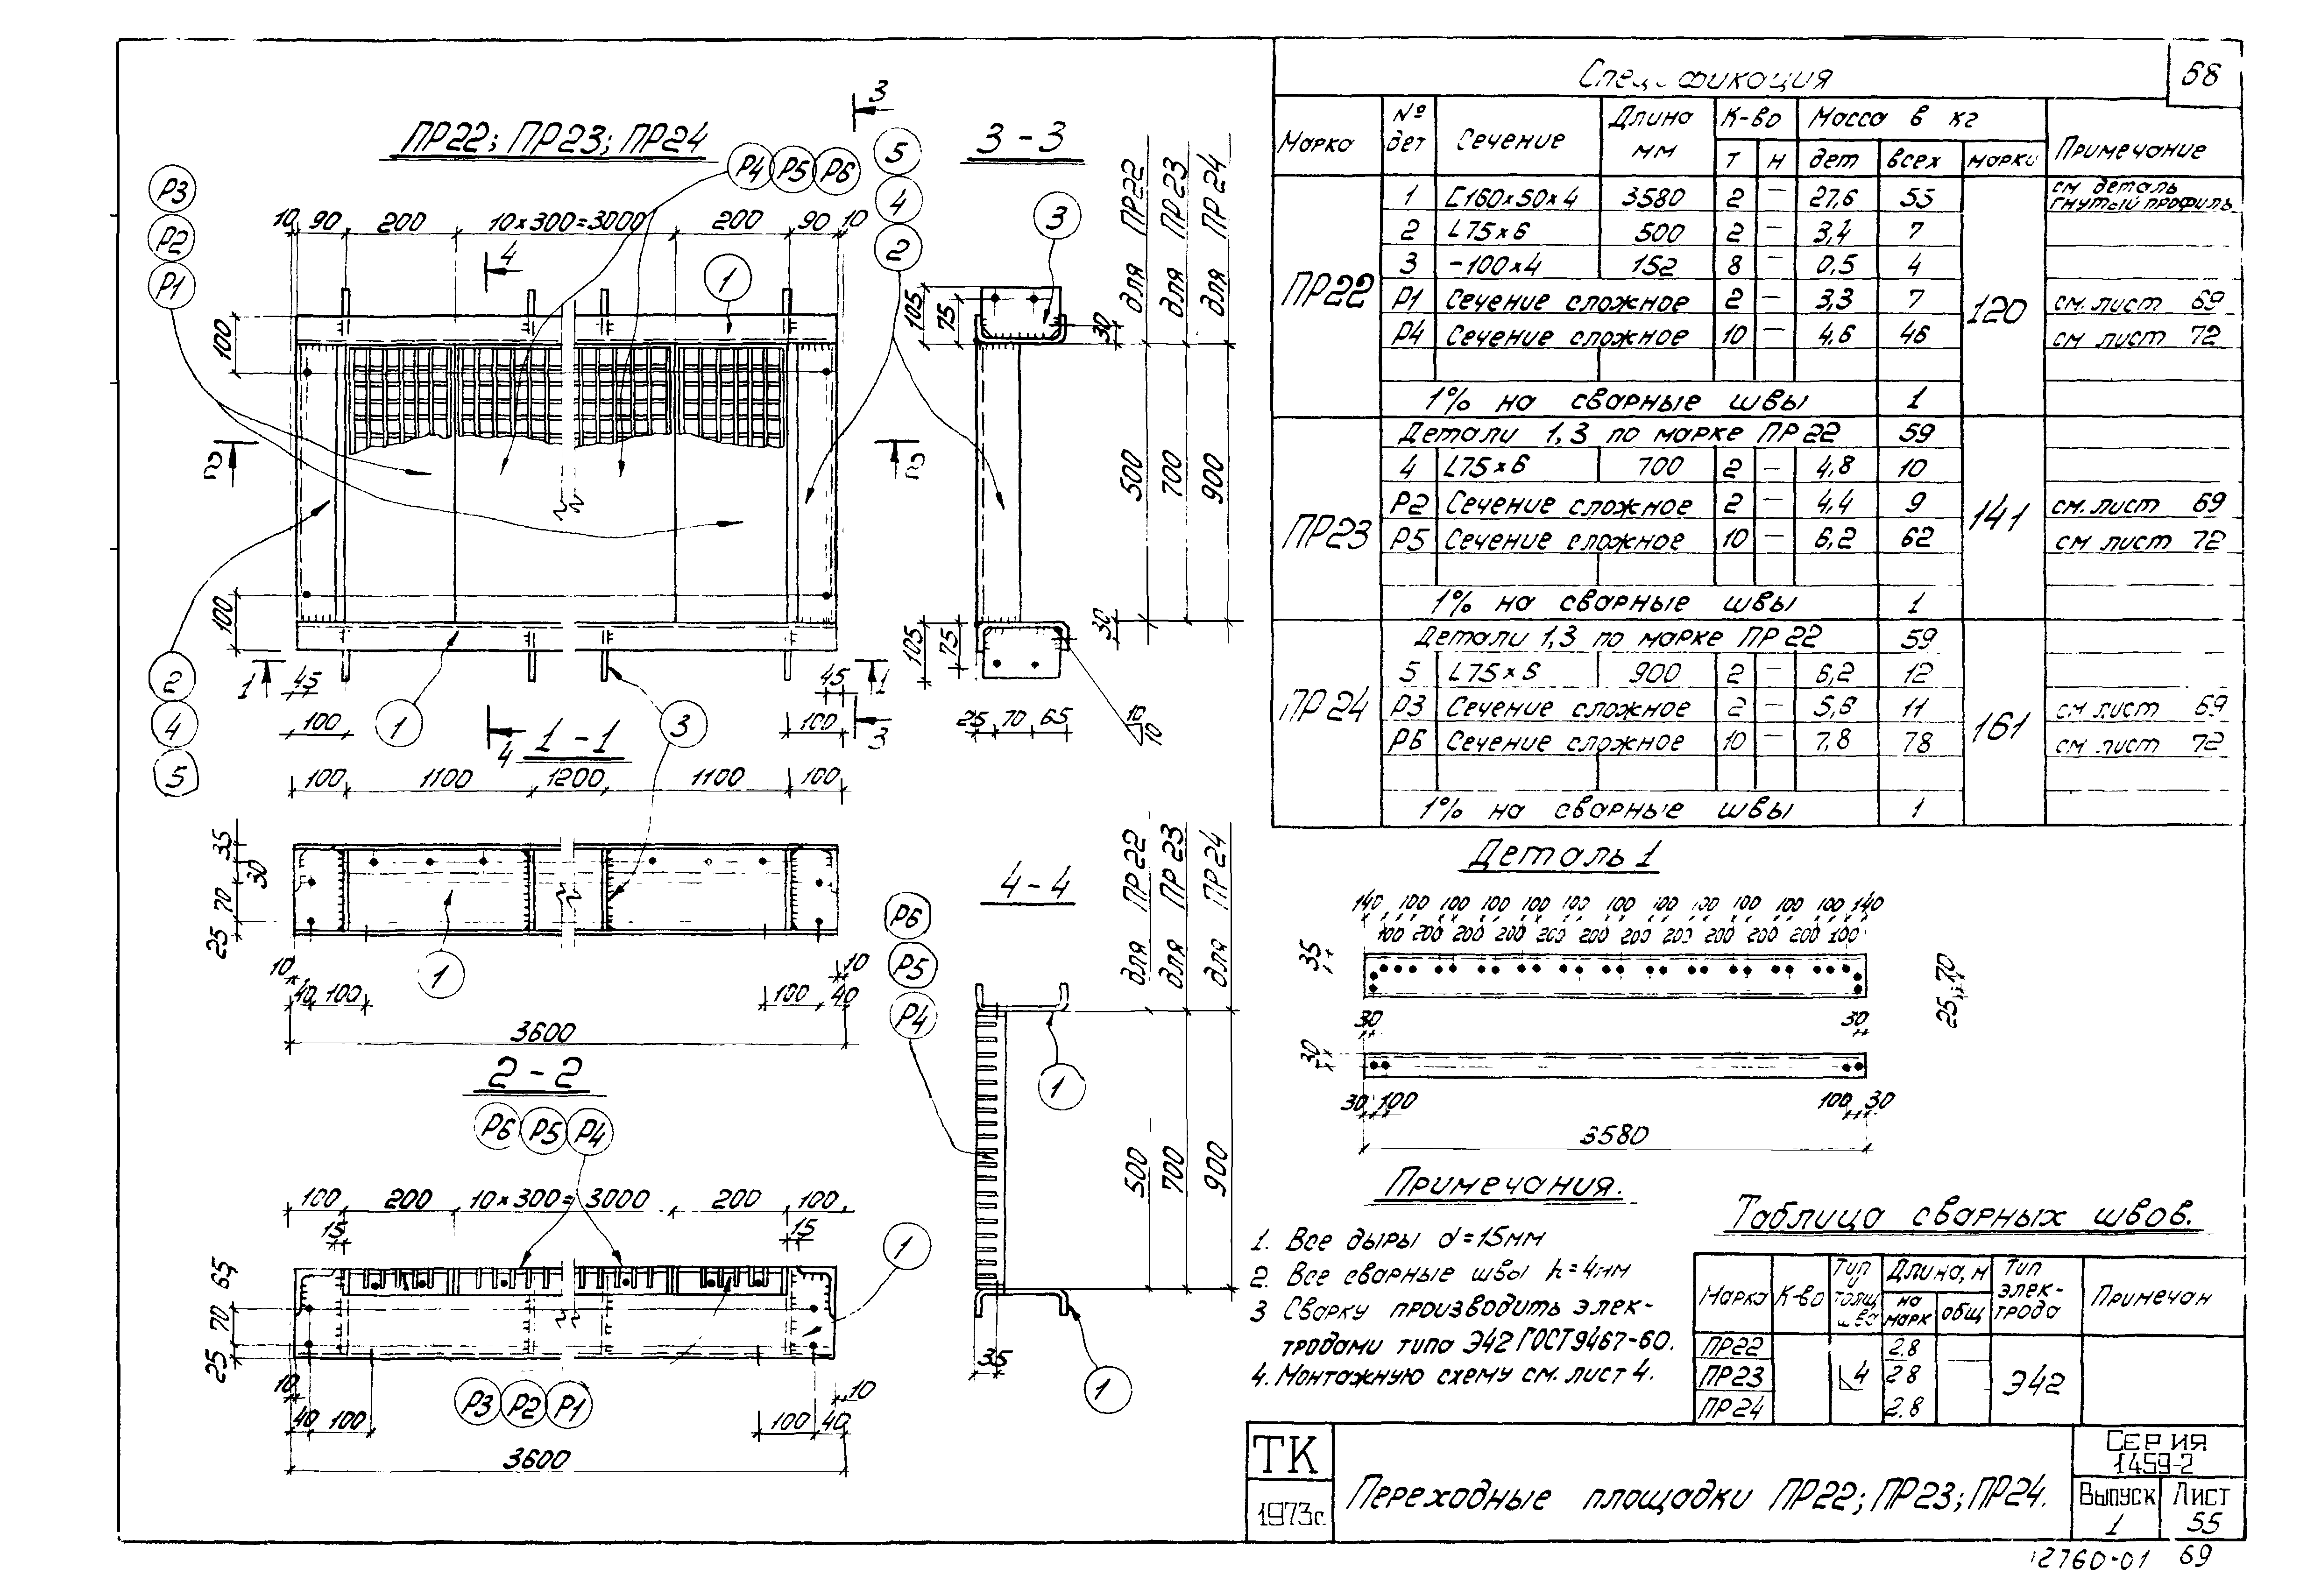 Спецификация
68
Марка
№ дет
Сечение
Длина мм
К-во
Масса в кг
Примечание
т
н
дет
всех
марки
ПР22
1 [160×50×4 3580 2 — 27,6 55 см деталь гнутый профиль
2 L75×6 500 2 — 3,4 7
3 -100×4 152 8 — 0,5 4
120
Р1 Сечение сложное 2 — 3,3 7 см. лист 69
Р4 Сечение сложное 10 — 4,6 46 см лист 72
1% на сварные швы 1
Детали 1,3 по марке ПР22 59
ПР23
4 L75×6 700 2 — 4,8 10
141
Р2 Сечение сложное 2 — 4,4 9 см. лист 69
Р5 Сечение сложное 10 — 6,2 62 см лист 72
1% на сварные швы 1
Детали 1,3 по марке ПР22 59
ПР24
5 L75×6 900 2 — 6,2 12
161
Р3 Сечение сложное 2 — 5,6 11 см лист 69
Р6 Сечение сложное 10 — 7,8 78 см. лист 72
1% на сварные швы 1
ПР22; ПР23; ПР24
3
Р4 Р5 Р6
5
4
2
Р3
Р2
Р1
10 90 200 10×300=3000 200 90 10
4
1
100
2 2
100
1 45 45 1
100 100
3
2
4
5
1
3
4
3-3
для ПР22
для ПР23
для ПР24
3
105
75
30
500
700
900
105
75
30
25 70 65
10
10
1-1
100 1100 1200 1100 100
35
30
70
25
1
10 10
40 100 100 40
3600
2-2
Р6 Р5 Р4
100 200 10×300=3000 200 100
15 15
1
65
70
25
10 10
Р3 Р2 Р1
40 100 100 40
3600
4-4
для ПР22
для ПР23
для ПР24
Р6
Р5
Р4
1
500
700
900
35
1
Деталь 1
140 100 100 100 100 100 100 100 100 100 100 100 140
100 200 200 200 200 200 200 200 200 200 200 100
35
70
25
30 30
30
30 100 100 30
3580
Примечания.
1. Все дыры d=15мм
2. Все сварные швы h=4мм
3 Сварку производить элек-
тродами типа Э42 ГОСТ 9467-60.
4. Монтажную схему см. лист 4.
Таблица сварных швов.
Марка
К-во
Тип и толщ шва
Длина, м
на марк
общ
Тип элек-трода
Примечан
ПР22 2.8
ПР23 4 2 8 Э42
ПР24 2.8
ТК
1973г.
Переходные площадки ПР22; ПР23; ПР24.
Серия
1459-2
Выпуск
1
Лист
55
12760-01 69